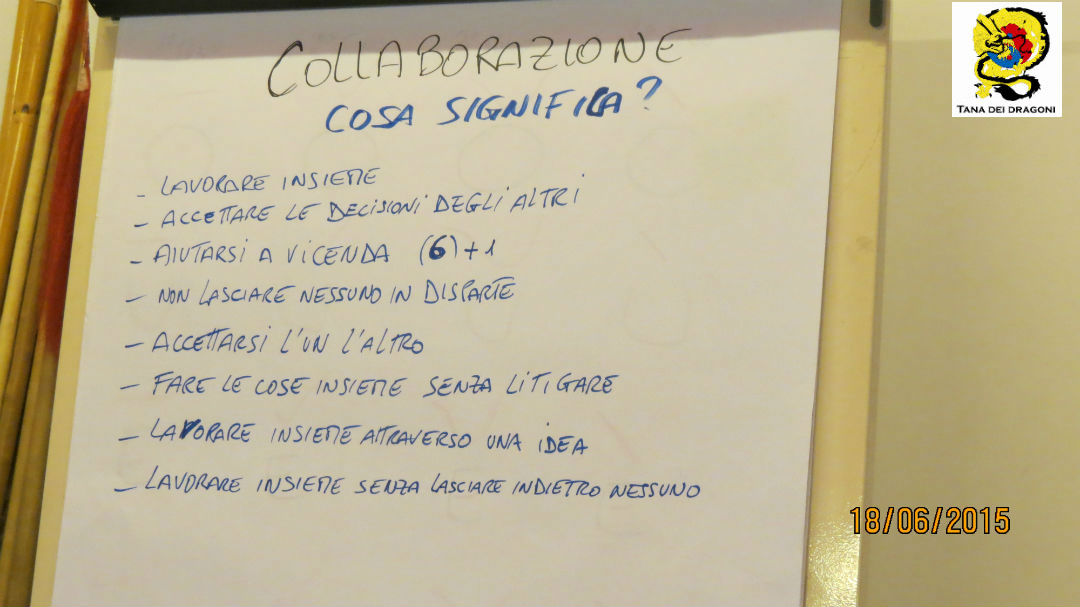 COLLABORAZIONE
COSA SIGNIFICA?
- LAVORARE INSIEME
- ACCETTARE LE DECISIONI DEGLI ALTRI
- AIUTARSI A VICENDA (6)+1
- NON LASCIARE NESSUNO IN DISPARTE
- ACCETTARSI L'UN L'ALTRO
- FARE LE COSE INSIEME SENZA LITIGARE
- LAVORARE INSIEME ATTRAVERSO UNA IDEA
- LAVORARE INSIEME SENZA LASCIARE INDIETRO NESSUNO
TANA DEI DRAGONI
18/06/2015